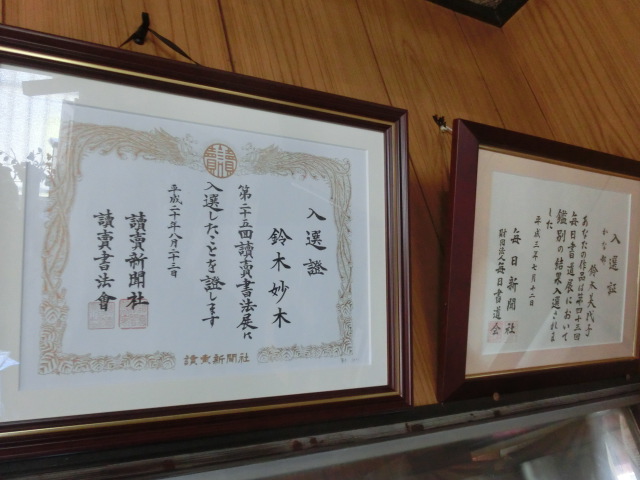 入選證
鈴木妙木
第二十五回讀賣書法展に
入選したことを證します
平成二十年八月二十二日
讀賣新聞社
讀賣書法會
讀賣新聞社
入選証
かな部
鈴木美代子
あなたの作品は第四十三回
毎日書道展において
鑑別の結果入選されま
した
平成三年七月十二日
毎日新聞社
財団法人毎日書道会